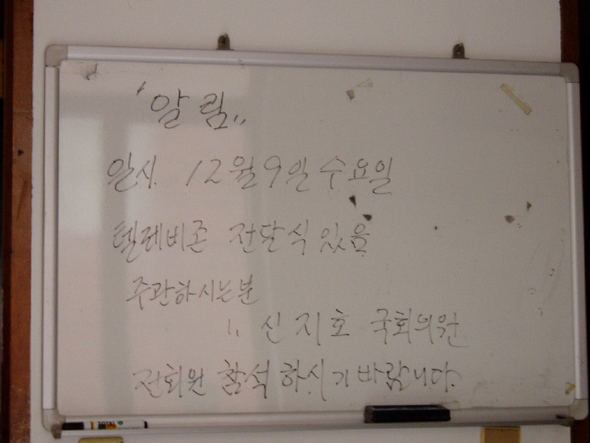 "알림"
일시 12월 9일 수요일
텔레비존 전달식 있음
주관하시는분
" 신지호 국회의원
전회원 참석하시기 바랍니다.